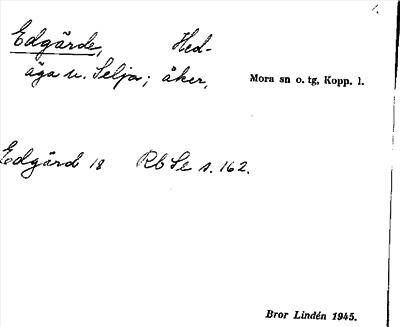 Edgärde, Hed-
äga u. Selja; åker,
Mora sn o. tg, Kopp. l.
Edgärd 18 Rb Se s. 162.
Bror Lindén 1945.